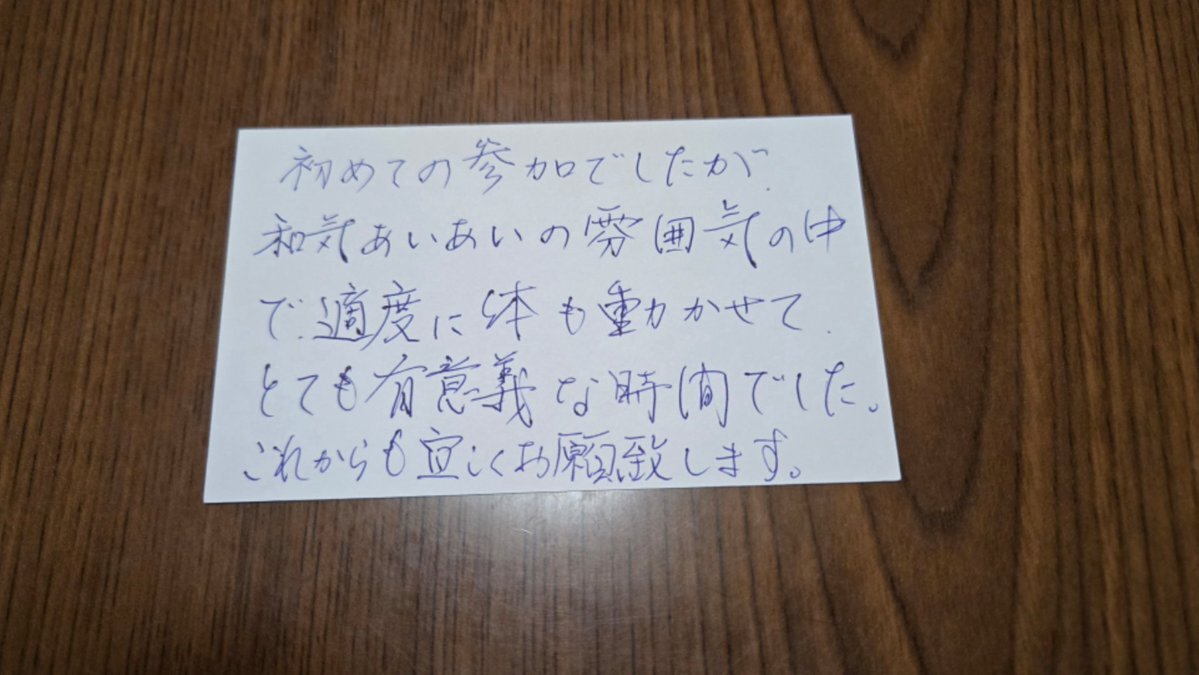 初めての参加でしたが、
和気あいあいの雰囲気の中
で、適度に体も動かせて、
とても有意義な時間でした。
これからも宜しくお願致します。